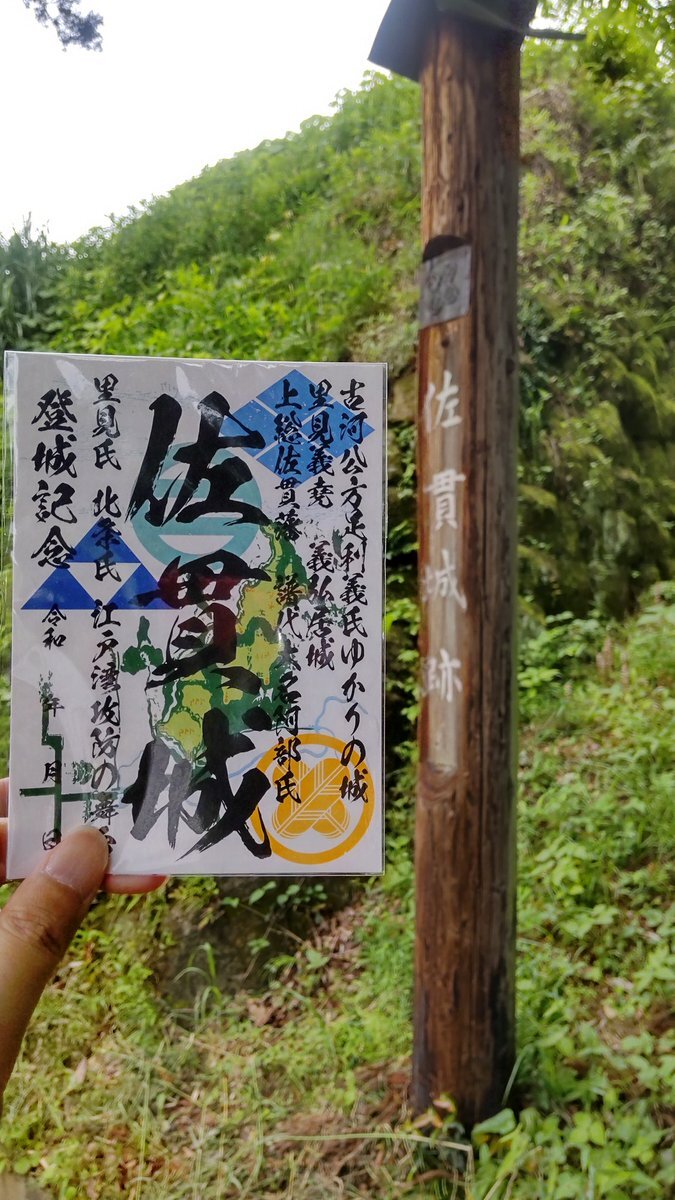 古河公方足利義氏ゆかりの城
里見義堯 義弘居城
上総佐貫藩 譜代大名阿部氏
佐貫城
里見氏 北条氏 江戸湾攻防の舞台
登城記念
令和 年 月 日
佐貫城跡